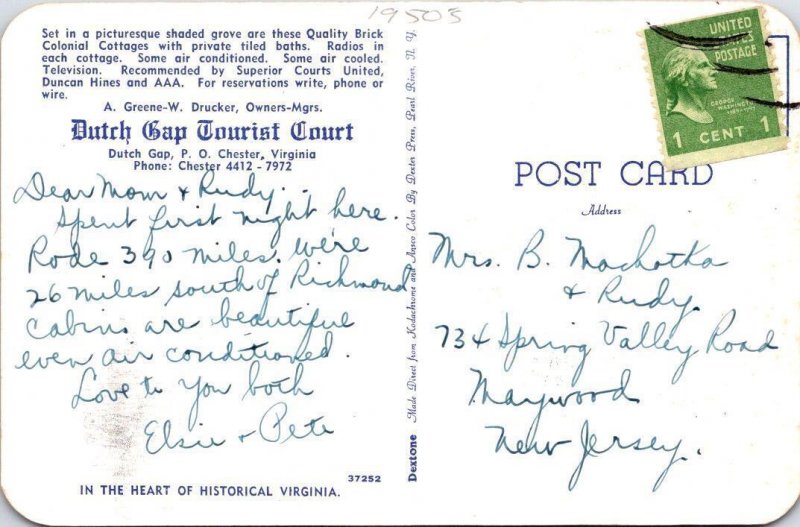 1950s
Set in a picturesque shaded grove are these Quality Brick
Colonial Cottages with private tiled baths. Radios in
each cottage. Some air conditioned. Some air cooled.
Television. Recommended by Superior Courts United,
Duncan Hines and AAA. For reservations write, phone or
wire.
A. Greene-W. Drucker, Owners-Mgrs.
Dutch Gap Tourist Court
Dutch Gap, P. O. Chester, Virginia
Phone: Chester 4412 - 7972
Dear Mom & Rudy.
Spent first night here.
Rode 390 miles. We're
26 miles south of Richmond
Cabins are beautiful
even air conditioned.
Love to you both
Elsie & Pete
37252
IN THE HEART OF HISTORICAL VIRGINIA.
Dextone
Made Direct from Kodachrome and Ansco Color By Dexter Press, Pearl River, N. Y.
UNITED
STATES
POSTAGE
GEORGE
WASHINGTON
1 CENT 1
POST CARD
Address
Mrs. B. Machotka
& Rudy.
734 Spring Valley Road
Maywood
New Jersey.